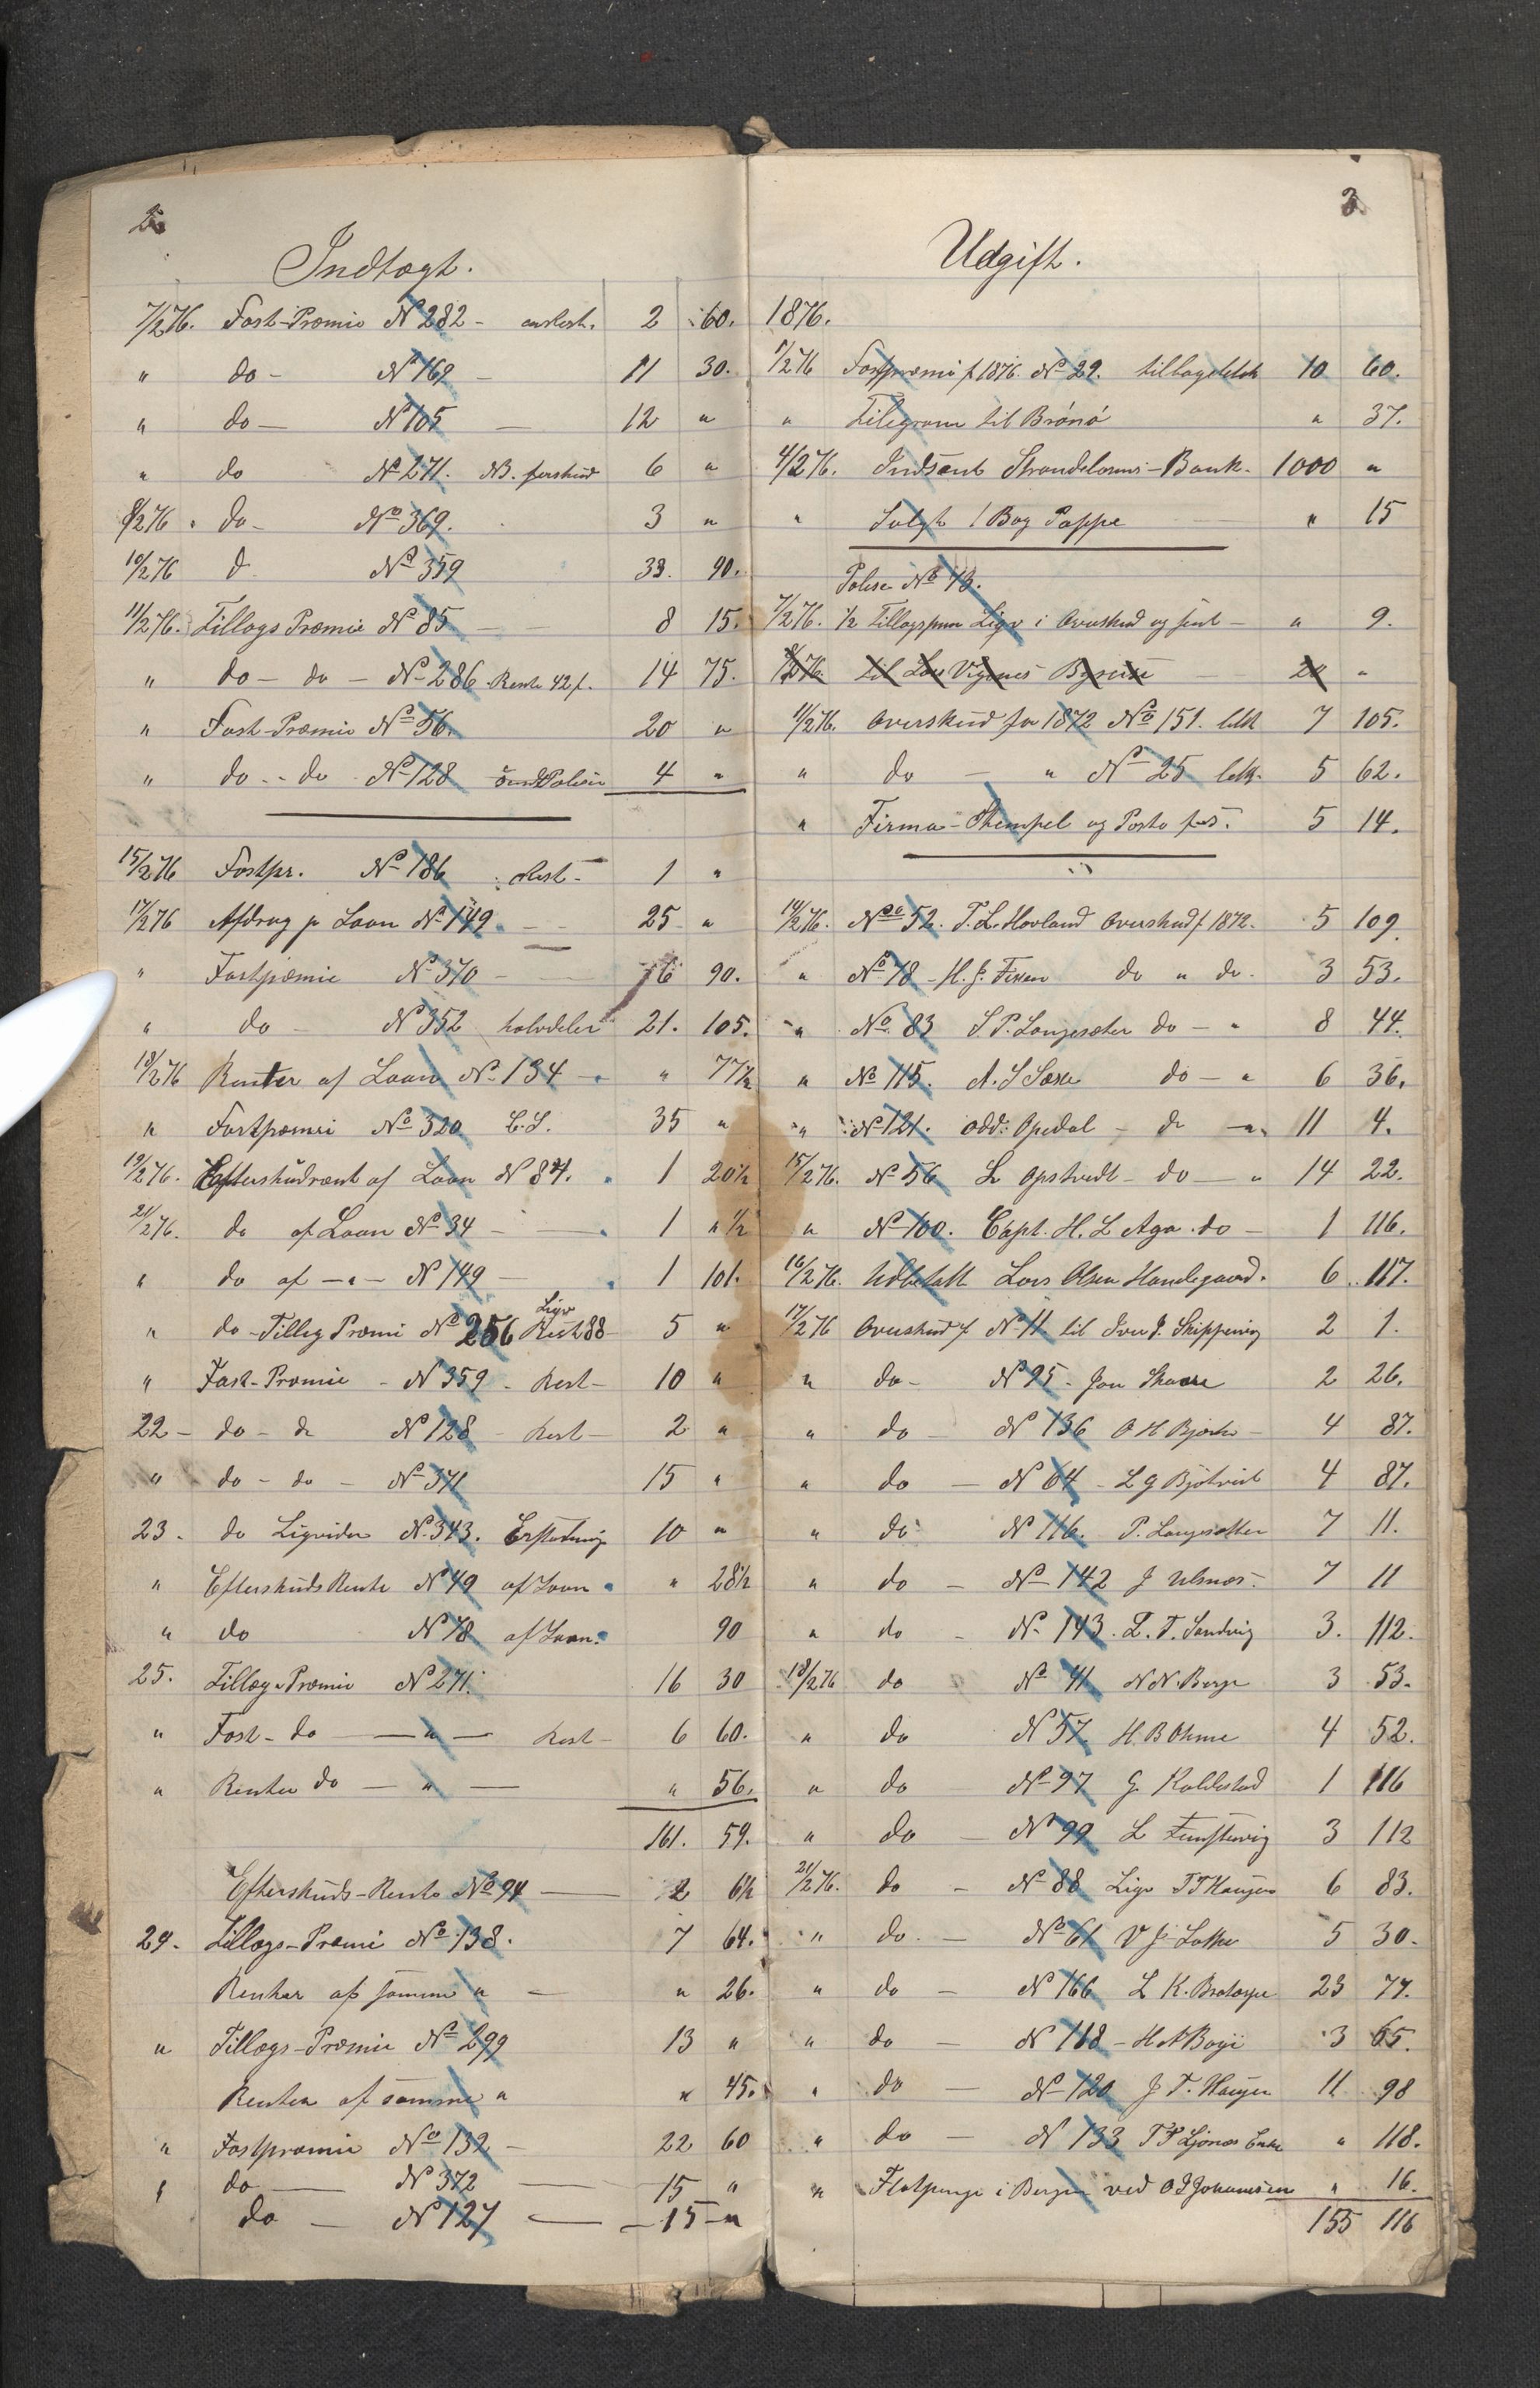 2
Indtægt.
7/2 76. Fast-Præmie No 282 - 2 60.
" do - No 169 - 11 30.
" do - No 105 - 12 "
" do No 271. NB. forskud 6 "
8/2 76 " do - No 369. 3 "
10/2 76 d No 359 33. 90.
11/2 76. Tillægs Præmie No 85 - 8 15.
" do - do - No 286. Rente 42 f. 14 75.
" Fast-Præmie No 56. 20 "
" do - do No 128 4 "
15/2 76 Fastpr. No 186 Rest - 1 "
17/2 76 Afdrag p Laan No 149. - 25 "
" Fastpræmie No 370 - 76 90.
" do - No 352 halvdelen 21. 105.
18/2 76 Renter af Laan No 134 - " 77½
" Fastpræmie No 320 L.S. 35 "
19/2 76. Efterskudrent af Laan No 84. 1 20½
21/2 76. do af Laan No 34 - 1 " ½
" do af - " - No 149 - 1 101.
" do - Tillæg Præmi No 256 Liqv Rest 88 5 "
" Fast-Præmie - No 359 - Rest - 10 "
22 - do - do No 128 - Rest - 2 "
" do - do - No 371 15 "
23 - do Liqvider No 343. Erstatning 10 "
" Efterskuds Rente No 49 af Laan " 28½
" do No 78 af Laan. 90
25. Tillæg Præmie No 271. 16 30
" Fast - do - " - Rest - 6 60.
" Renter do - " - " 56.
161. 59.
Efterskuds-Rente No 94 - 2 6½
29. Tillægs-Præmi No 138. 7 64.
Renter af samme " - " 26.
" Tillægs-Præmie No 299 13 "
Renter af samme " " 45.
" Fastpræmie No 132 - 22 60
" do - No 372 - 15 "
do - No 127 - 15 - "
3
Udgift.
1876.
1/2 76 Fastpræmi f 1876. No 29. 10 60.
" Telegram til Brönö " 37.
4/2 76. Indsend Strandebarms-Bank. 1000 "
" Solgt 1 Bog Pappe " 15
Polise No 13.
7/2 76. ½ Tillægspræm Liqv i Overskud og " 9.
8/2 76. til Lars Vignes Byreise 20 "
11/2 76. Overskud for 1872 No 151. 7 105.
" do - " No 25 5 62.
" Firma-Stempel og Porto 5 14.
14/2 76. No 52. T. L. Hovland Overskud f. 1872. 5 109
" No 78 - H. J. Fixen do " do - 3 53.
" No 83 S. P. Langesæter do - " 8 44.
" No 115. A. S Sexe do - " 6 36.
" No 121. Odd: Opedal - do - " 11 4.
15/2 76. No 56 L Opstvedt - do - " 14 22.
" No 100. Capt. H. L Aga. do - 1 116.
16/2 76. Udbetalt Lars Olsen Handegaard. 6. 117.
17/2 76 Overskud f No 11. til Iver J. Skippervig 2 1.
" do - No 95 - Jon Skaare 2 26.
" do - No 136 O H Bjørke - 4 87.
" do - No 64 - L G Bjotveit 4 87.
" do No 116. P. Langesætter 7 11.
" do - No 142 J Ulsnes - 7 11
" do - No 143. L. T. Sandvig 3. 112.
18/2 76 do No 41 N N. Berge 3 53.
" do No 57 H. B Ohme 4 52.
" do No 97 G. Koldestad 1 116
" do - No 99 L 3 112
21/2 76. do - No 88 Liqv T T Haugen 6 83.
" do. - No 61 V J. Lothe 5 30.
" do - No 166 L K. 23 77.
" do - No 118 - H A Boge 3 65.
" do - No 120 J T. Haugen 11 98
" do - No 133 T P Ljones Enke " 118.
" Flotpenge i Bergen ved O J Johannesen " 16.
155 116